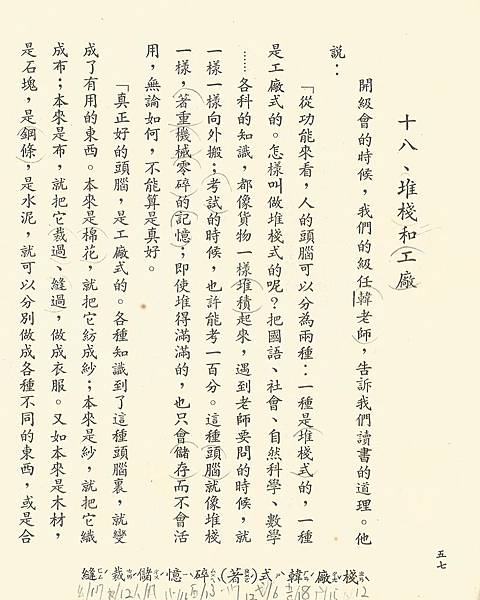 十八、堆棧和工廠
開級會的時候，我們的級任韓老師，告訴我們讀書的道理。他
說：
「從功能來看，人的頭腦可以分為兩種：一種是堆棧式的，一種
是工廠式的。怎樣叫做堆棧式的呢？把國語、社會、自然科學、數學
……各科的知識，都像貨物一樣堆積起來，遇到老師要問的時候，就
一樣一樣向外搬；考試的時候，也許能考一百分。這種頭腦就像堆棧
一樣，著重機械零碎的記憶；即使堆得滿滿的，也只會儲存而不會活
用，無論如何，不能算是真好。
「真正好的頭腦，是工廠式的。各種知識到了這種頭腦裏，就變
成了有用的東西。本來是棉花，就把它紡成紗；本來是紗，就把它織
成布；本來是布，就把它裁過、縫過，做成衣服。又如本來是木材，
是石塊，是鋼條，是水泥，就可以分別做成各種不同的東西，或是合
五七
棧 廠 韓 式 (著) 碎 憶 儲 裁 縫